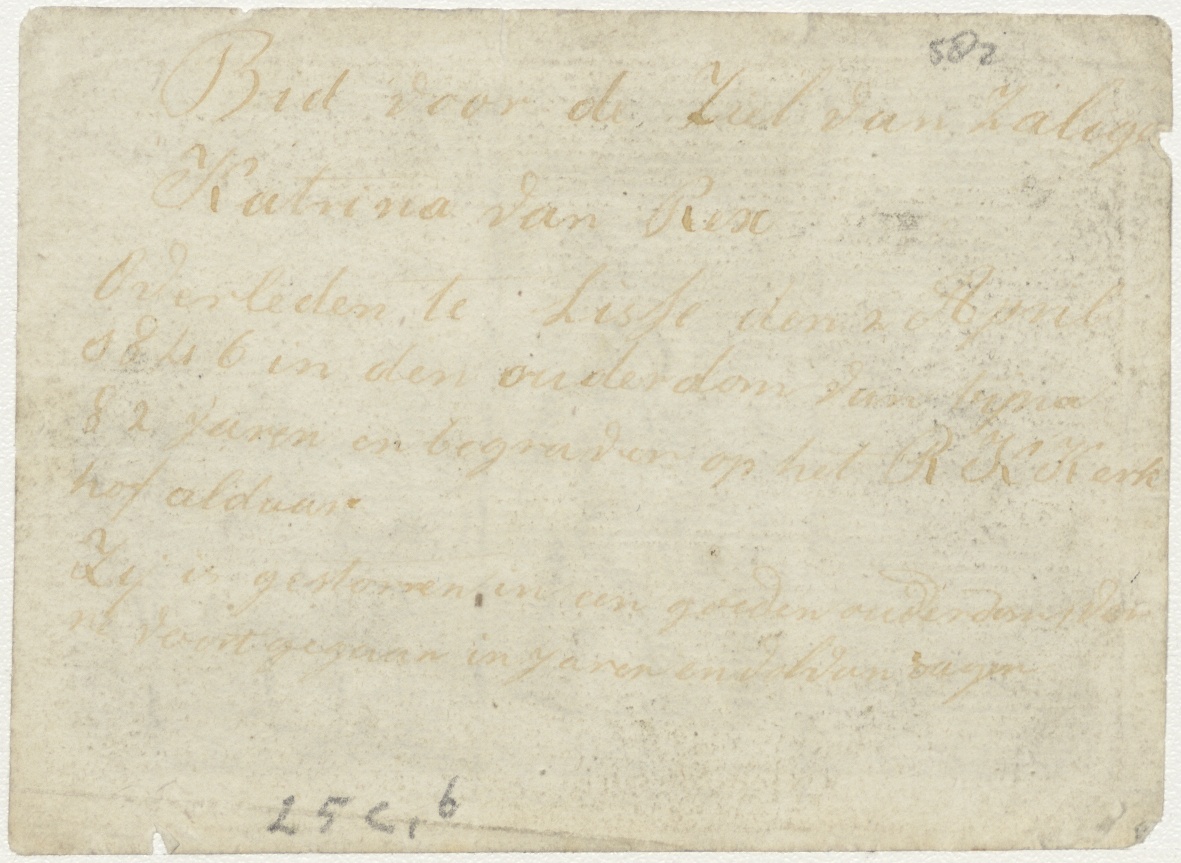 502
Bid voor de Ziel van Zaliger
Katrina van Rex
Overleden te Lisse den 2 April
1846 in den ouderdom van byna
82 Jaren en begraven op het R K Kerk
hof aldaar
Zij is gestorven in een goeden ouderdom
voortgegaan in Jaren en vol van dagen
25 c, b